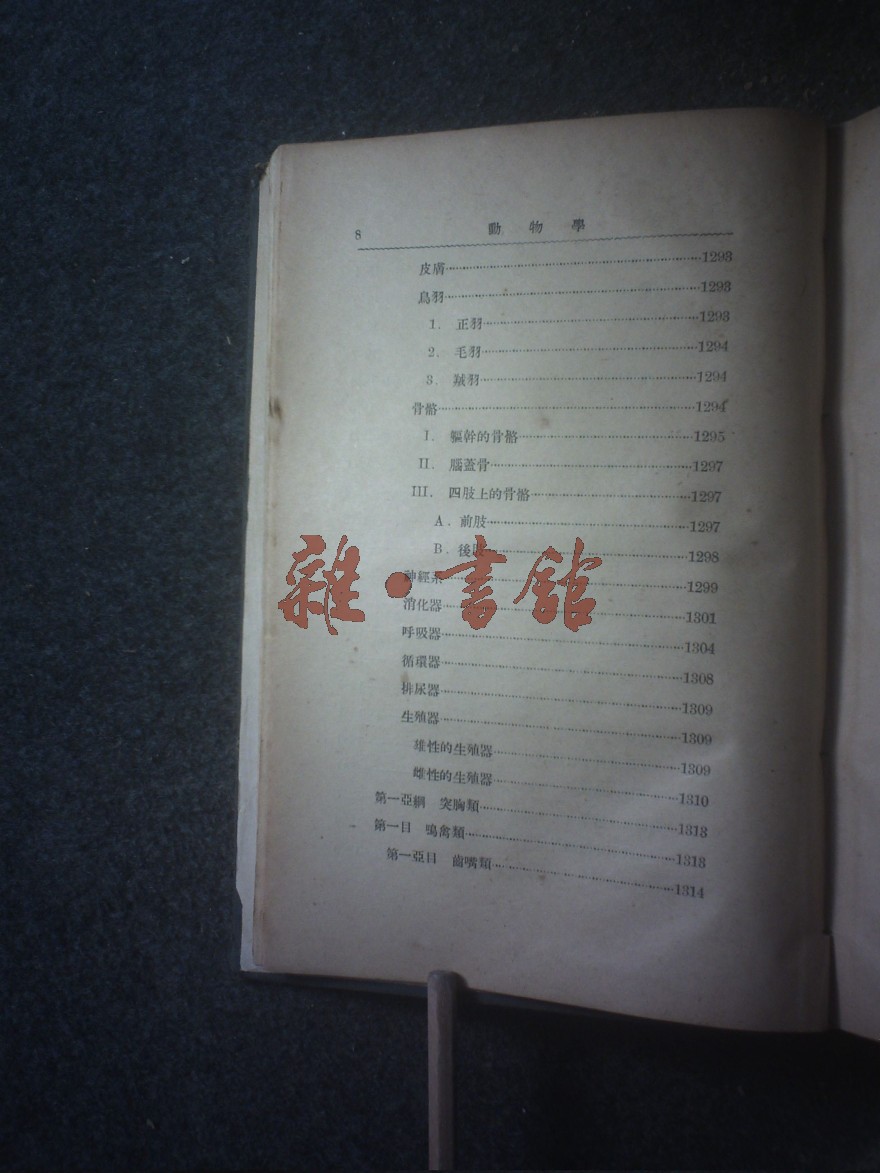 8 動物學
皮膚……1293
鳥羽……1293
1. 正羽……1293
2. 毛羽……1294
3. 羢羽……1294
骨骼……1294
I. 軀幹的骨骼……1295
II. 腦蓋骨……1297
III. 四肢上的骨骼……1297
A. 前肢……1297
B. 後肢……1298
神經系……1299
消化器……1301
呼吸器……1304
循環器……1308
排尿器……1309
生殖器……1309
雄性的生殖器……1309
雌性的生殖器……1310
第一亞綱 突胸類……1313
第一目 鳴禽類……1313
第一亞目 齒嘴類……1314
雜·書館